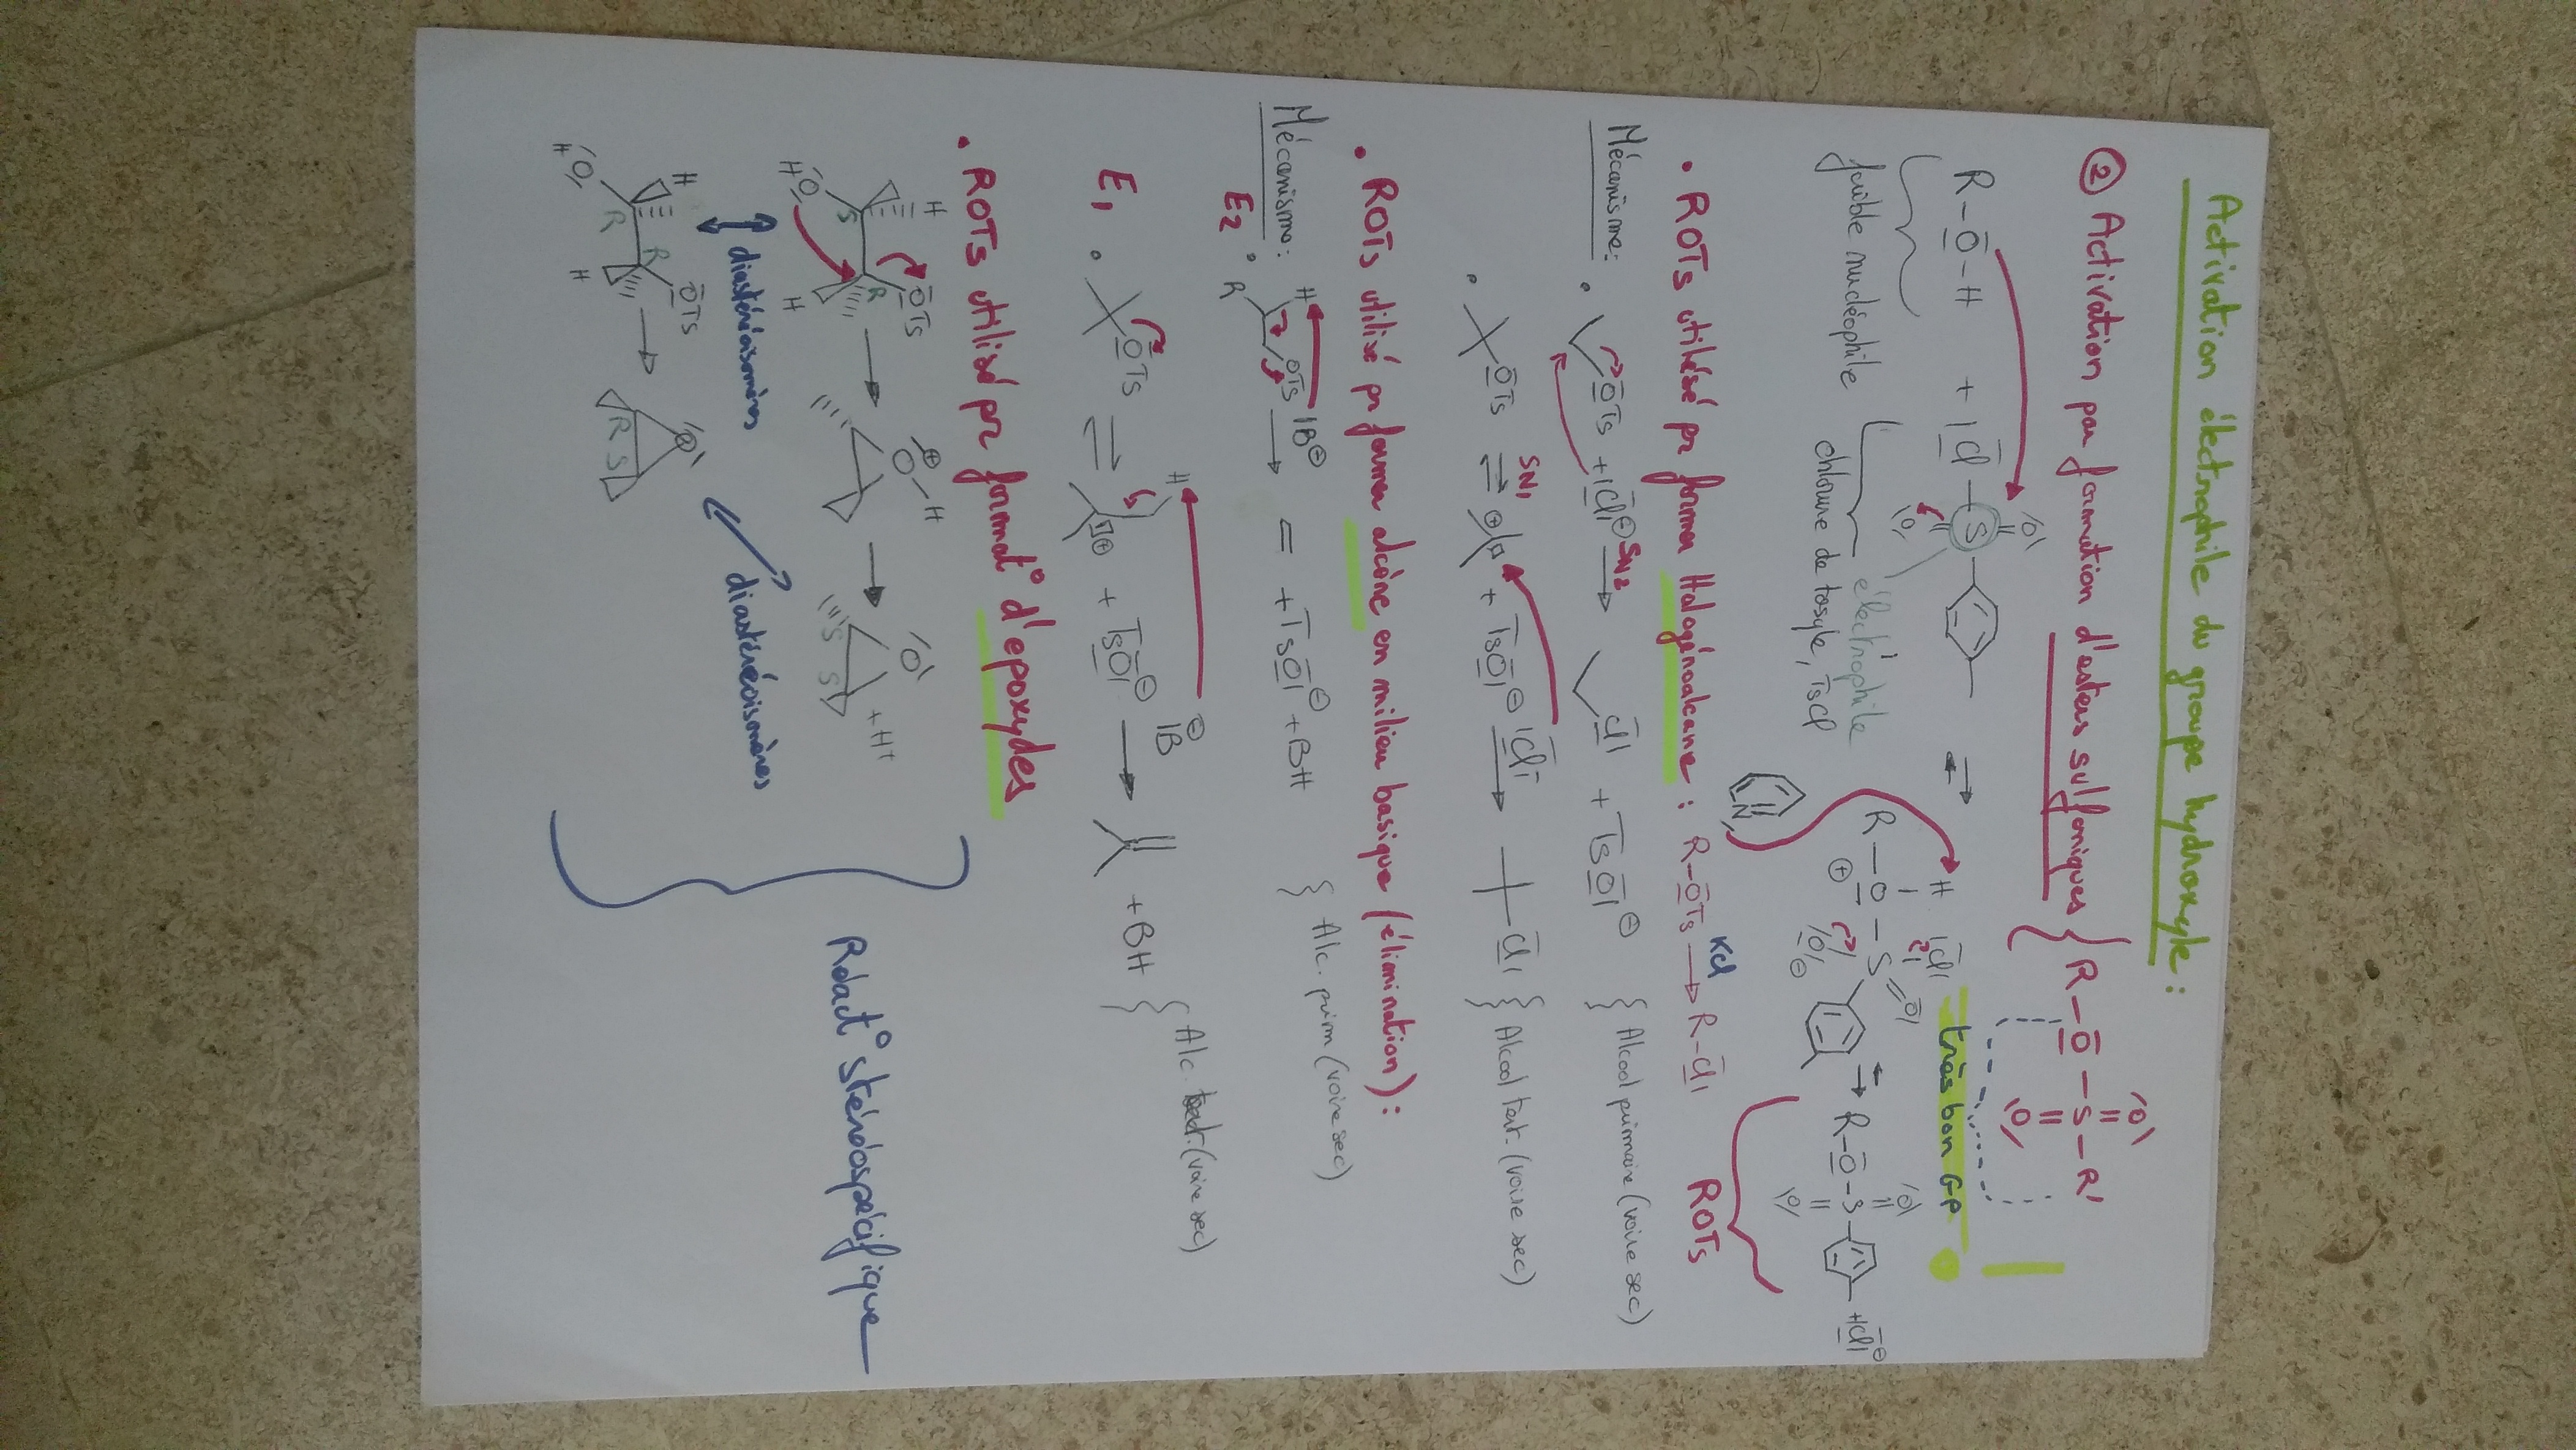 Activation électrophile du groupe hydroxyle :
② Activation par formation d'esters sulfoniques { R-O-S-R'
O
O
R-O-H + Cl-S
O
O
⇌ R-O-S=O
H
Cl
très bon GP
⊕
O ⊖
N
⇌ R-O-S
O
O
+ Cl ⊖
faible nucléophile
électrophile
chlorure de tosyle, TsCl
ROTs
• ROTs utilisé pr former Halogénoalcane : R-OTs → R-Cl
KCl
Mécanisme : • OTs + Cl ⊖ SN2 → Cl + TsO ⊖ { Alcool primaire (voire sec)
• OTs ⇌ SN1 ⊕ + TsO ⊖ Cl → Cl { Alcool tert. (voire sec)
• ROTs utilisé pr former alcène en milieu basique (élimination) :
Mécanisme : • R H OTs B ⊖ → = + TsO ⊖ + BH { Alc. prim (voire sec)
E2
E1 • OTs ⇌ H ⊕ + TsO ⊖ B ⊖ → + BH { Alc. tert. (voire sec)
• ROTs utilisé pr format° d'epoxydes
H HO S R OTs H → O ⊕ H → O S S + H+
diastéréoisomères
diastéréoisomères
H HO R R OTs H → O R S
Réact° stéréospécifique